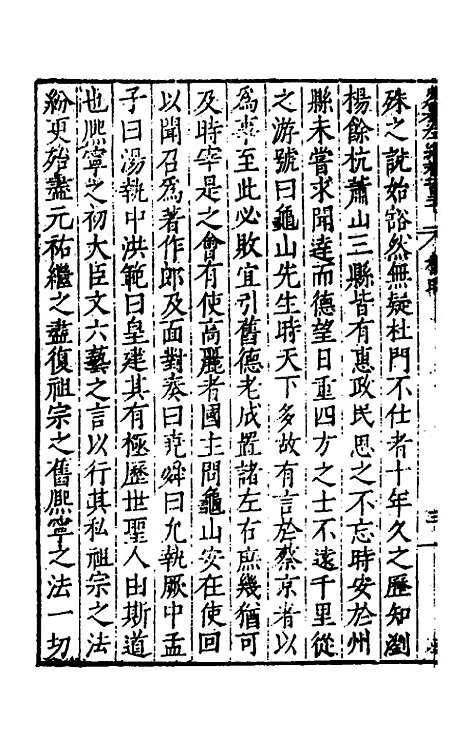 殊之說始豁然無疑杜門不仕者十年久之歷知瀏
楊餘杭蕭山三縣皆有惠政民思之不忘時安於州
縣未嘗求聞達而德望日重四方之士不遠千里從
之游號曰龜山先生時天下多故有言於蔡京者以
爲事至此必敗宜引舊德老成置諸左右庶幾猶可
及時宰是之會有使高麗者國主問龜山安在使回
以聞召爲著作郎及面對奏曰堯舜曰允執厥中孟
子曰湯執中洪範曰皇建其有極歷世聖人由斯道
也熈寧之初大臣文六藝之言以行其私祖宗之法
紛更始盡元祐繼之盡復祖宗之舊熈寧之法一切